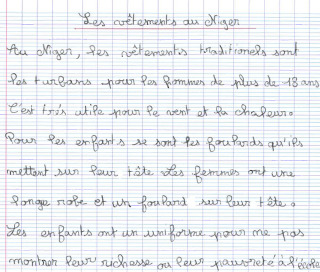 Les vêtements au Niger
Au Niger, les vêtements traditionels sont
les turbans pour les hommes de plus de 18 ans
C'est très utile pour le vent et la chaleur.
Pour les enfants se sont les foulards qu'ils
mettent sur leur tête Les femmes ont une
longe robe et un foulard sur leur tête.
Les enfants ont un uniforme pour ne pas
montrer leur richesse ou leur pauvreté à l'école